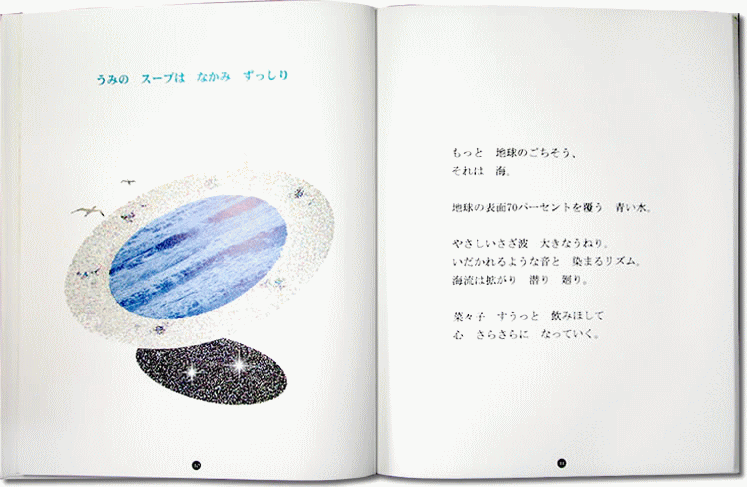 うみの　スープは　なかみ　ずっしり
もっと　地球のごちそう、
それは　海。
地球の表面70パーセントを覆う　青い水。
やさしいさざ波　大きなうねり。
いだかれるような音と　染まるリズム。
海流は拡がり　潜り　廻り。
菜々子　すうっと　飲みほして
心　さらさらに　なっていく。